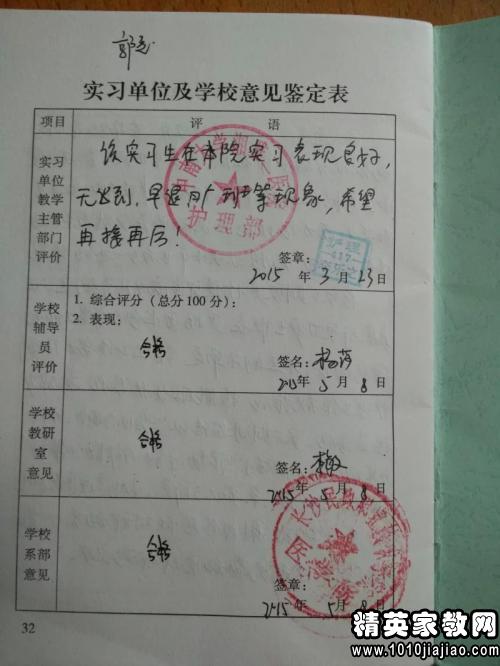 实习单位及学校意见鉴定表
项目 评 语
实习单位教学主管部门评价
该实习生在本院实习表现良好,
无迟到、早退旷班等现象,希望
再接再厉!
护理部
签章:
护理
2015年3月23日
学校辅导员评价
1. 综合评分(总分100分):
2. 表现:
合格
签名:
2015年5月8日
学校教研室意见
合格
签名:
2015年5月8日
学校系部意见
合格
签章:
2015年5月8日
32
精英家教网
www.1010jiajiao.com